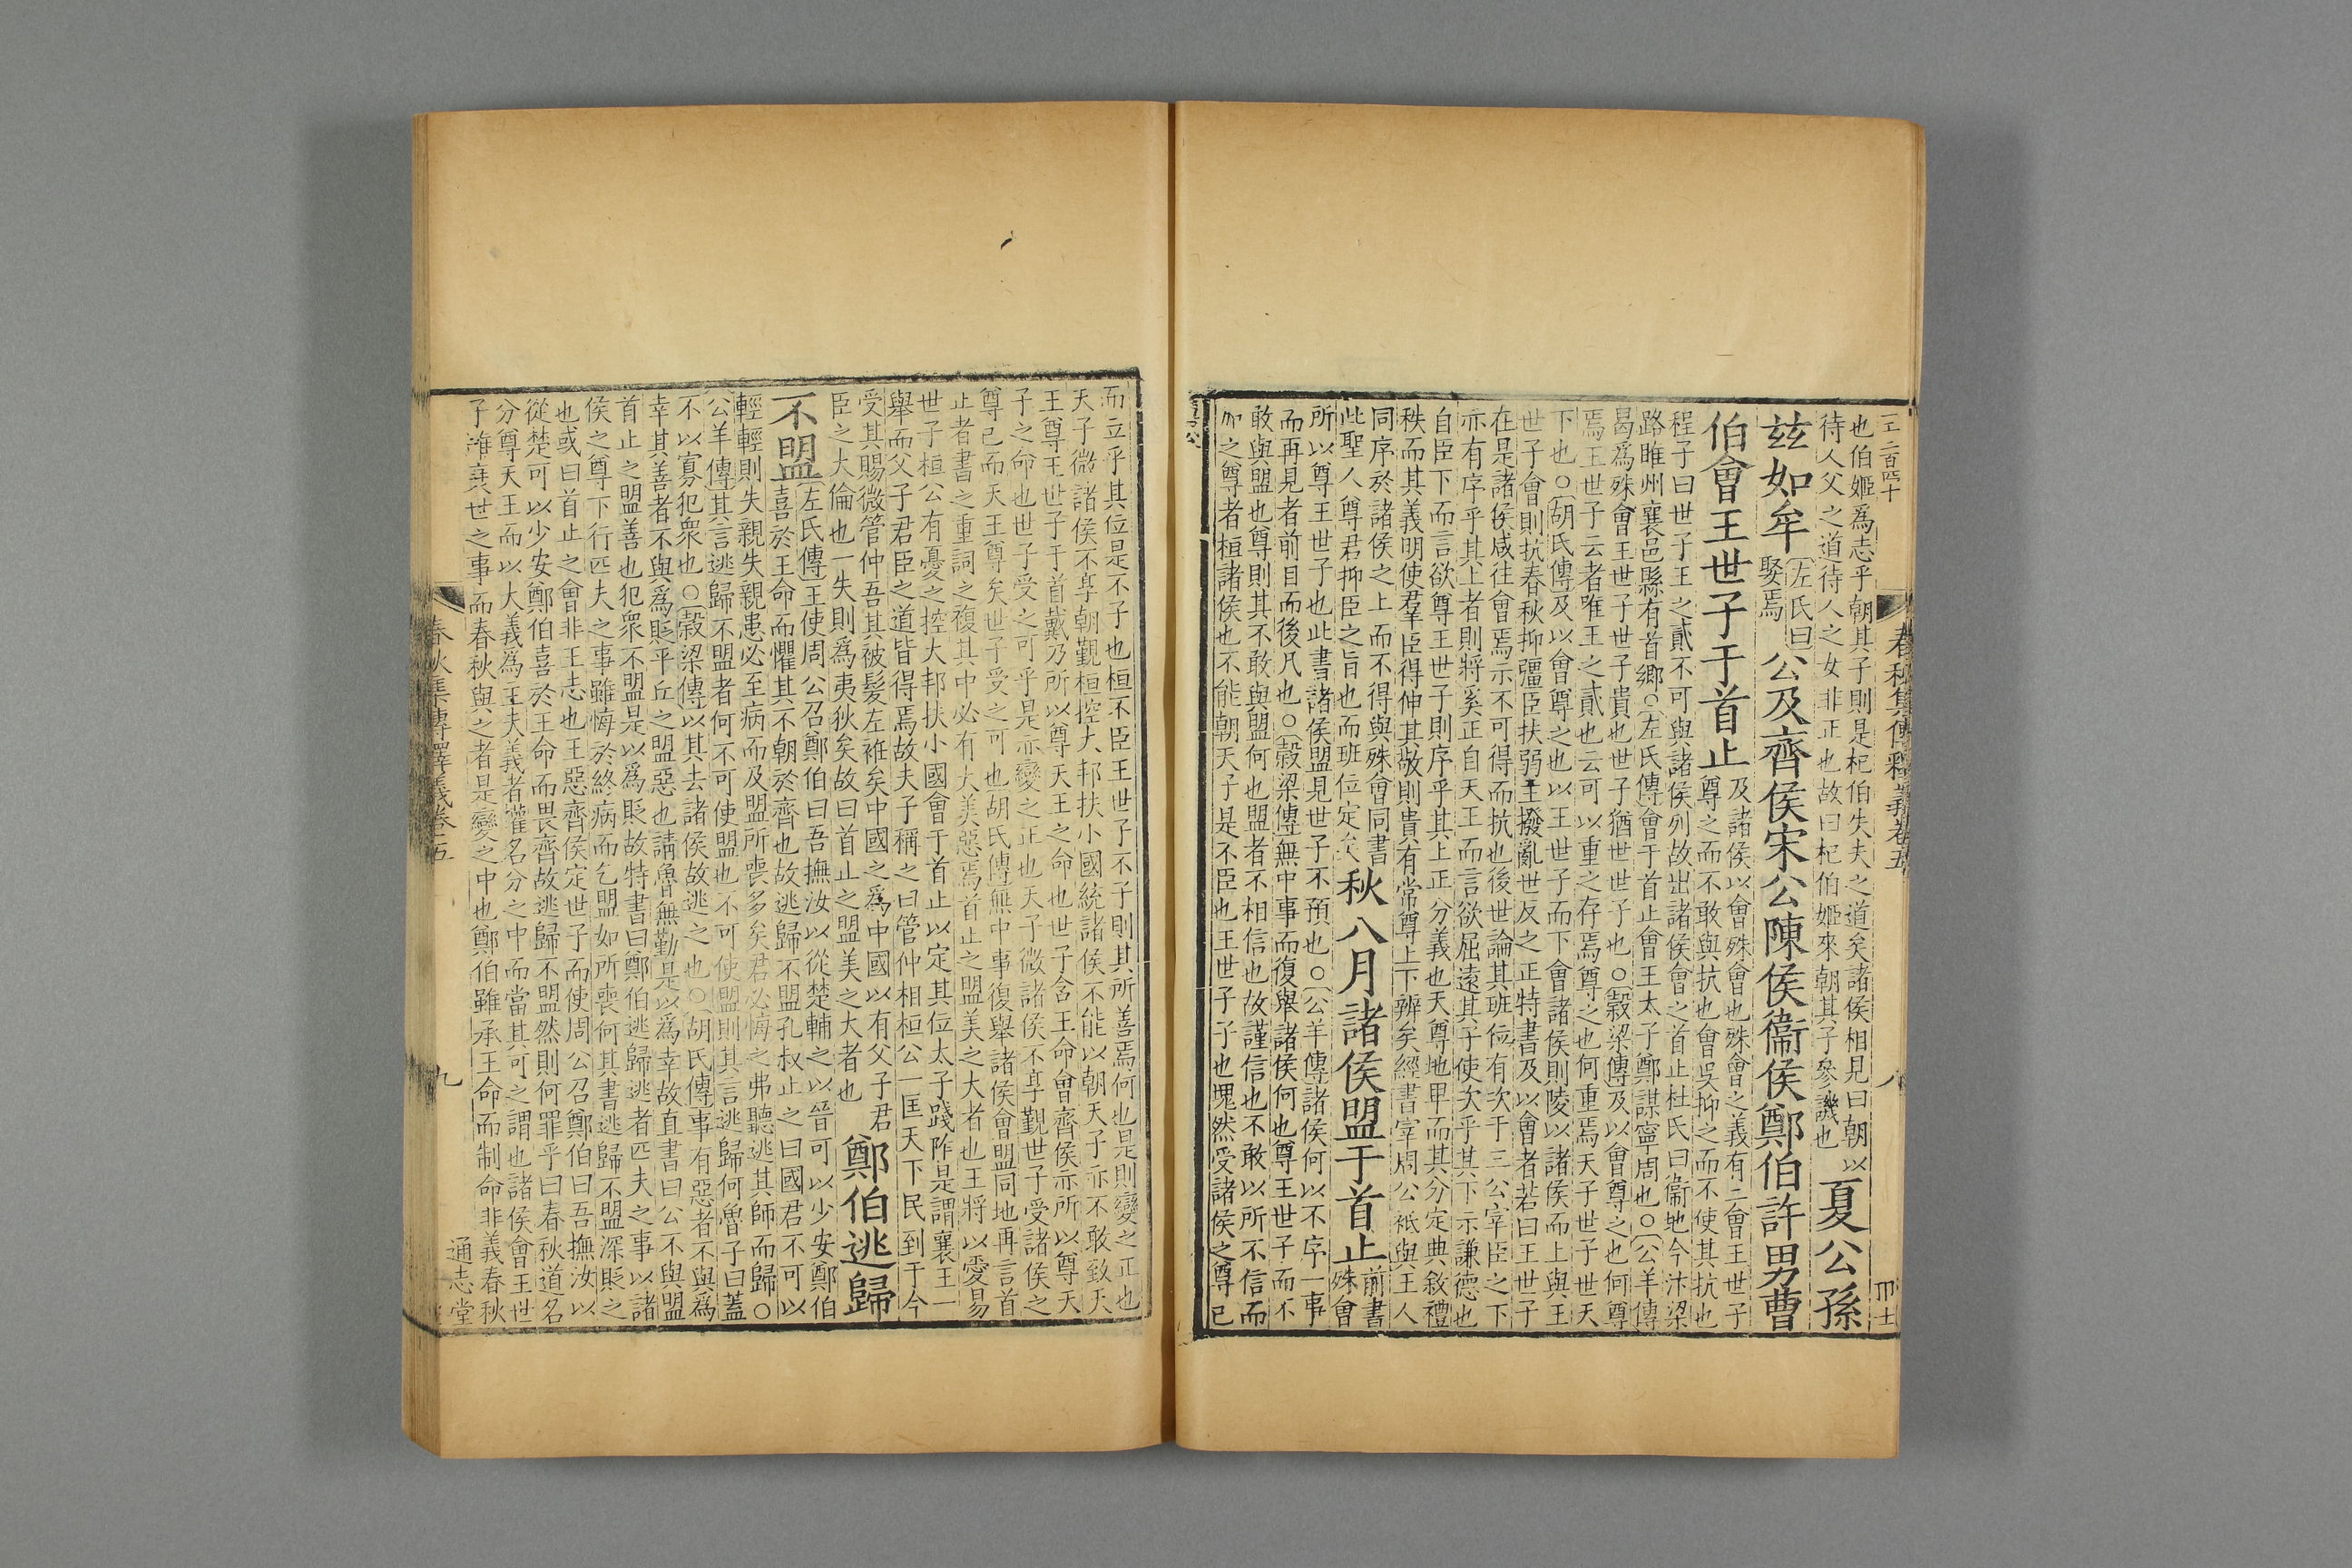 工二百四十
春秋集傳釋義卷五
八
也伯姬爲志乎朝其子則是杞伯失夫之道矣諸侯相見曰朝以
待人父之道待人之女非正也故曰杞伯姬來朝其子參譏也
夏公孫
茲如牟
左氏曰
娶焉
公及齊侯宋公陳侯衞侯鄭伯許男曹
伯會王世子于首止
及諸侯以會殊會也殊會之義有二會王世子
尊之而不敢與抗也會吳抑之而不使其抗也
程子曰世子王之貳不可與諸侯列故出諸侯會之首止杜氏曰衞地今汴梁
路睢州襄邑縣有首鄉○左氏傳會于首止會王太子鄭謀寧周也○公羊傳
曷爲殊會王世子世子貴也世子猶世世子也○穀梁傳及以會尊之也何尊
焉王世子云者唯王之貳也云可以重之存焉尊之也何重焉天子世子世天
下也○胡氏傳及以會尊之也以王世子而下會諸侯則陵以諸侯而上與王
世子會則抗春秋抑彊臣扶弱主撥亂世反之正特書及以會者若曰王世子
在是諸侯咸往會焉示不可得而抗也後世論其班位有次于三公宰臣之下
亦有序乎其上者則將奚正自天王而言欲屈遠其子使次乎其下示謙德也
自臣下而言欲尊王世子則序乎其上正分義也天尊地卑而其分定典敘禮
秩而其義明使羣臣得伸其敬則貴有常尊上下辨矣經書宰周公祗與王人
同序於諸侯之上而不得與殊會同書
此聖人尊君抑臣之旨也而班位定矣
秋八月諸侯盟于首止
前書
殊會
所以尊王世子也此書諸侯盟見世子不預也○公羊傳諸侯何以不序一事
而再見者前目而後凡也○穀梁傳無中事而復舉諸侯何也尊王世子而不
敢與盟也尊則其不敢與盟何也盟者不相信也故謹信也不敢以所不信而
加之尊者桓諸侯也不能朝天子是不臣也王世子子也塊然受諸侯之尊已
而立乎其位是不子也桓不臣王世子不子則其所善焉何也是則變之正也
天子微諸侯不享朝覲桓控大邦扶小國統諸侯不能以朝天子亦不敢致天
王尊王世子于首戴乃所以尊天王之命也世子含王命會齊侯亦所以尊天
子之命也世子受之可乎是亦變之正也天子微諸侯不享覲世子受諸侯之
尊已而天王尊矣世子受之可也胡氏傳無中事復舉諸侯會盟同地再言首
止者書之重詞之複其中必有大美惡焉首止之盟美之大者也王將以愛易
世子桓公有憂之控大邦扶小國會于首止以定其位太子踐阼是謂襄王一
舉而父子君臣之道皆得焉故夫子稱之曰管仲相桓公一匡天下民到于今
受其賜微管仲吾其被髮左衽矣中國之爲中國以有父子君
臣之大倫也一失則爲夷狄矣故曰首止之盟美之大者也
鄭伯逃歸
不盟
左氏傳王使周公召鄭伯曰吾撫汝以從楚輔之以晉可以少安鄭伯
喜於王命而懼其不朝於齊也故逃歸不盟孔叔止之曰國君不可以
輕輕則失親失親患必至病而及盟所喪多矣君必悔之弗聽逃其師而歸○
公羊傳其言逃歸不盟者何不可使盟也不可使盟則其言逃歸何魯子曰蓋
不以寡犯衆也○穀梁傳以其去諸侯故逃之也○胡氏傳事有惡者不與爲
幸其善者不與爲貶平丘之盟惡也請魯無勤是以爲幸故直書曰公不與盟
首止之盟善也犯衆不盟是以爲貶故特書曰鄭伯逃歸逃者匹夫之事以諸
侯之尊下行匹夫之事雖悔於終病而乞盟如所喪何其書逃歸不盟深貶之
也或曰首止之會非王志也王惡齊侯定世子而使周公召鄭伯曰吾撫汝以
從楚可以少安鄭伯喜於王命而畏齊故逃歸不盟然則何罪乎曰春秋道名
分尊天王而以大義爲主夫義者權名分之中而當其可之謂也諸侯會王世
子雖衰世之事而春秋與之者是變之中也鄭伯雖承王命而制命非義春秋
春秋集傳釋義卷五
九
通志堂